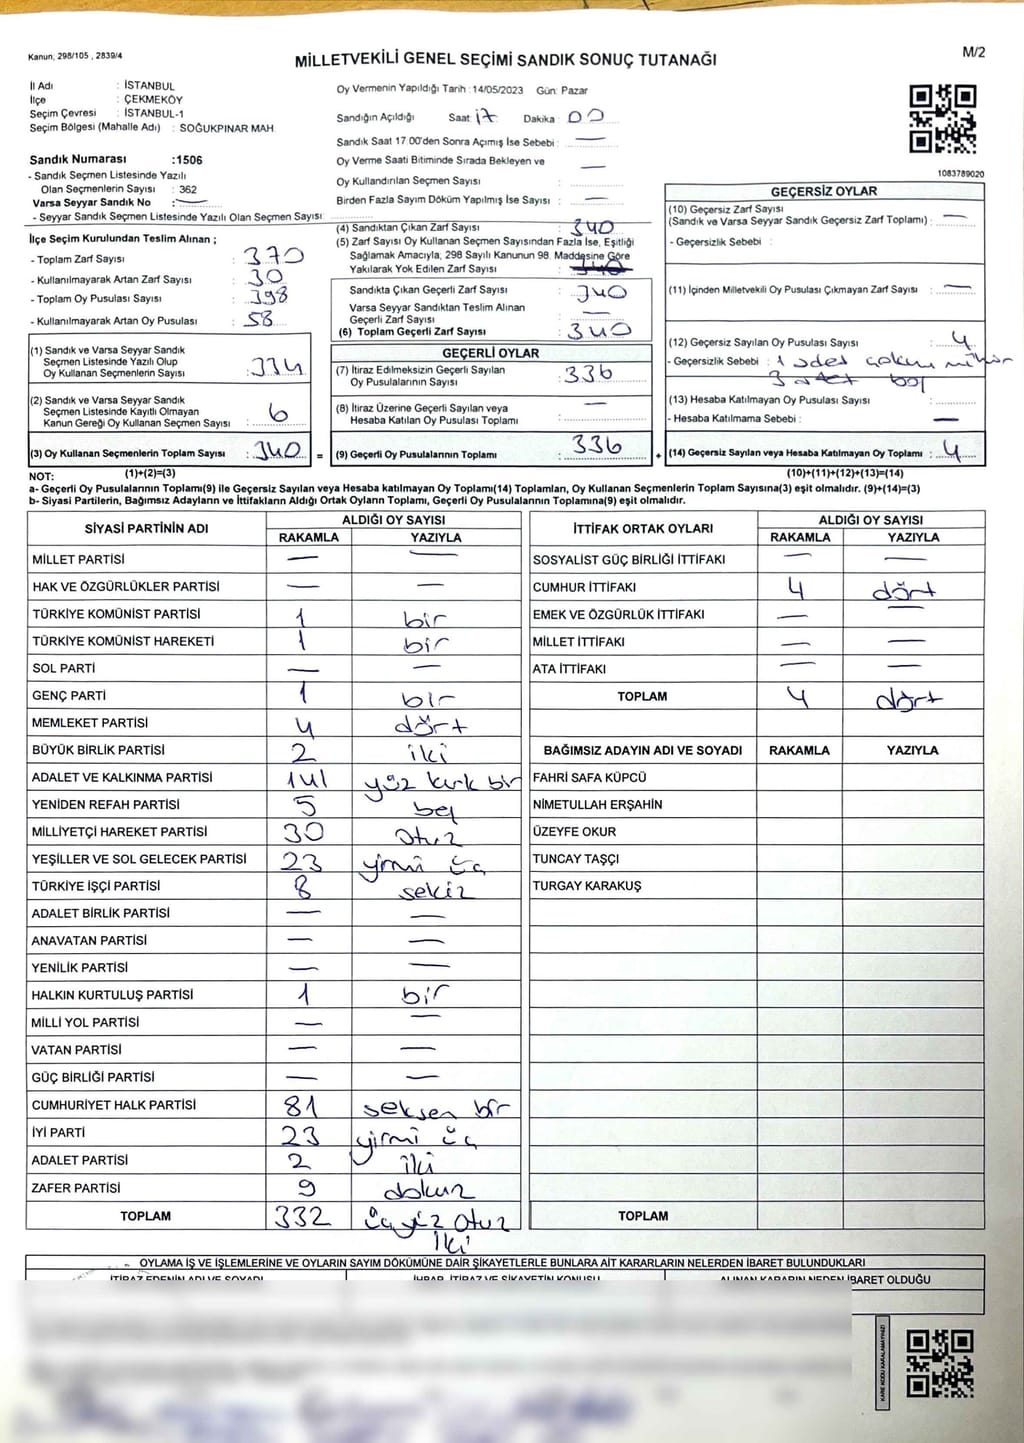 Kanun, 298/105 , 2839/4
MİLLETVEKİLİ GENEL SEÇİMİ SANDIK SONUÇ TUTANAĞI
M/2
İl Adı : İSTANBUL
İlçe : ÇEKMEKÖY
Seçim Çevresi : İSTANBUL-1
Seçim Bölgesi (Mahalle Adı) : SOĞUKPINAR MAH.
Sandık Numarası :1506
- Sandık Seçmen Listesinde Yazılı
Olan Seçmenlerin Sayısı : 362
Varsa Seyyar Sandık No : —
- Seyyar Sandık Seçmen Listesinde Yazılı Olan Seçmen Sayısı:
Oy Vermenin Yapıldığı Tarih :14/05/2023 Gün: Pazar
Sandığın Açıldığı Saat: 17 Dakika 00
Sandık Saat 17.00'den Sonra Açımış İse Sebebi : —
Oy Verme Saati Bitiminde Sırada Bekleyen ve —
Oy Kullandırılan Seçmen Sayısı :
Birden Fazla Sayım Döküm Yapılmış İse Sayısı : —
1083789020
İlçe Seçim Kurulundan Teslim Alınan ;
- Toplam Zarf Sayısı : 370
- Kullanılmayarak Artan Zarf Sayısı : 30
- Toplam Oy Pusulası Sayısı : 398
- Kullanılmayarak Artan Oy Pusulası : 58
(1) Sandık ve Varsa Seyyar Sandık
Seçmen Listesinde Yazılı Olup
Oy Kullanan Seçmenlerin Sayısı : 334
(2) Sandık ve Varsa Seyyar Sandık
Seçmen Listesinde Kayıtlı Olmayan
Kanun Gereği Oy Kullanan Seçmen Sayısı : 6
(3) Oy Kullanan Seçmenlerin Toplam Sayısı : 340 =
(4) Sandıktan Çıkan Zarf Sayısı : 340
(5) Zarf Sayısı Oy Kullanan Seçmen Sayısından Fazla İse, Eşitliği
Sağlamak Amacıyla; 298 Sayılı Kanunun 98. Maddesine Göre
Yakılarak Yok Edilen Zarf Sayısı :
Sandıkta Çıkan Geçerli Zarf Sayısı : 340
Varsa Seyyar Sandıktan Teslim Alınan
Geçerli Zarf Sayısı : —
(6) Toplam Geçerli Zarf Sayısı : 340
GEÇERLİ OYLAR
(7) İtiraz Edilmeksizin Geçerli Sayılan
Oy Pusulalarının Sayısı : 336
(8) İtiraz Üzerine Geçerli Sayılan veya —
Hesaba Katılan Oy Pusulası Toplamı :
(9) Geçerli Oy Pusulalarının Toplamı : 336 +
GEÇERSİZ OYLAR
(10) Geçersiz Zarf Sayısı
(Sandık ve Varsa Seyyar Sandık Geçersiz Zarf Toplamı) : —
- Geçersizlik Sebebi :
(11) İçinden Milletvekili Oy Pusulası Çıkmayan Zarf Sayısı : —
(12) Geçersiz Sayılan Oy Pusulası Sayısı : 4
- Geçersizlik Sebebi : 1 adet mühür
3 adet boş
(13) Hesaba Katılmayan Oy Pusulası Sayısı :
- Hesaba Katılmama Sebebi : —
(14) Geçersiz Sayılan veya Hesaba Katılmayan Oy Toplamı : 4
NOT: (1)+(2)=(3) (10)+(11)+(12)+(13)=(14)
a- Geçerli Oy Pusulalarının Toplamı(9) ile Geçersiz Sayılan veya Hesaba katılmayan Oy Toplamı(14) Toplamları, Oy Kullanan Seçmenlerin Toplam Sayısına(3) eşit olmalıdır. (9)+(14)=(3)
b- Siyasi Partilerin, Bağımsız Adayların ve İttifakların Aldığı Ortak Oyların Toplamı, Geçerli Oy Pusulalarının Toplamına(9) eşit olmalıdır.
SİYASİ PARTİNİN ADI ALDIĞI OY SAYISI
RAKAMLA YAZIYLA
MİLLET PARTİSİ — —
HAK VE ÖZGÜRLÜKLER PARTİSİ — —
TÜRKİYE KOMÜNİST PARTİSİ 1 bir
TÜRKİYE KOMÜNİST HAREKETİ 1 bir
SOL PARTİ — —
GENÇ PARTİ 1 bir
MEMLEKET PARTİSİ 4 dört
BÜYÜK BİRLİK PARTİSİ 2 iki
ADALET VE KALKINMA PARTİSİ 141 yüz kırk bir
YENİDEN REFAH PARTİSİ 5 beş
MİLLİYETÇİ HAREKET PARTİSİ 30 otuz
YEŞİLLER VE SOL GELECEK PARTİSİ 23 yirmi üç
TÜRKİYE İŞÇİ PARTİSİ 8 sekiz
ADALET BİRLİK PARTİSİ — —
ANAVATAN PARTİSİ — —
YENİLİK PARTİSİ — —
HALKIN KURTULUŞ PARTİSİ 1 bir
MİLLİ YOL PARTİSİ — —
VATAN PARTİSİ — —
GÜÇ BİRLİĞİ PARTİSİ — —
CUMHURİYET HALK PARTİSİ 81 seksen bir
İYİ PARTİ 23 yirmi üç
ADALET PARTİSİ 2 iki
ZAFER PARTİSİ 9 dokuz
TOPLAM 332 üçyüz otuz
iki
İTTİFAK ORTAK OYLARI ALDIĞI OY SAYISI
RAKAMLA YAZIYLA
SOSYALİST GÜÇ BİRLİĞİ İTTİFAKI — —
CUMHUR İTTİFAKI 4 dört
EMEK VE ÖZGÜRLÜK İTTİFAKI — —
MİLLET İTTİFAKI — —
ATA İTTİFAKI — —
TOPLAM 4 dört
BAĞIMSIZ ADAYIN ADI VE SOYADI RAKAMLA YAZIYLA
FAHRİ SAFA KÜPCÜ
NİMETULLAH ERŞAHİN
ÜZEYFE OKUR
TUNCAY TAŞÇI
TURGAY KARAKUŞ
TOPLAM
OYLAMA İŞ VE İŞLEMLERİNE VE OYLARIN SAYIM DÖKÜMÜNE DAİR ŞİKAYETLERLE BUNLARA AİT KARARLARIN NELERDEN İBARET BULUNDUKLARI
İTİRAZ EDENİN ADI VE SOYADI İHBAR, İTİRAZ VE ŞİKAYETİN KONUSU ALINAN KARARIN NEDEN İBARET OLDUĞU
KARE KODU KARALAMAYINIZ!